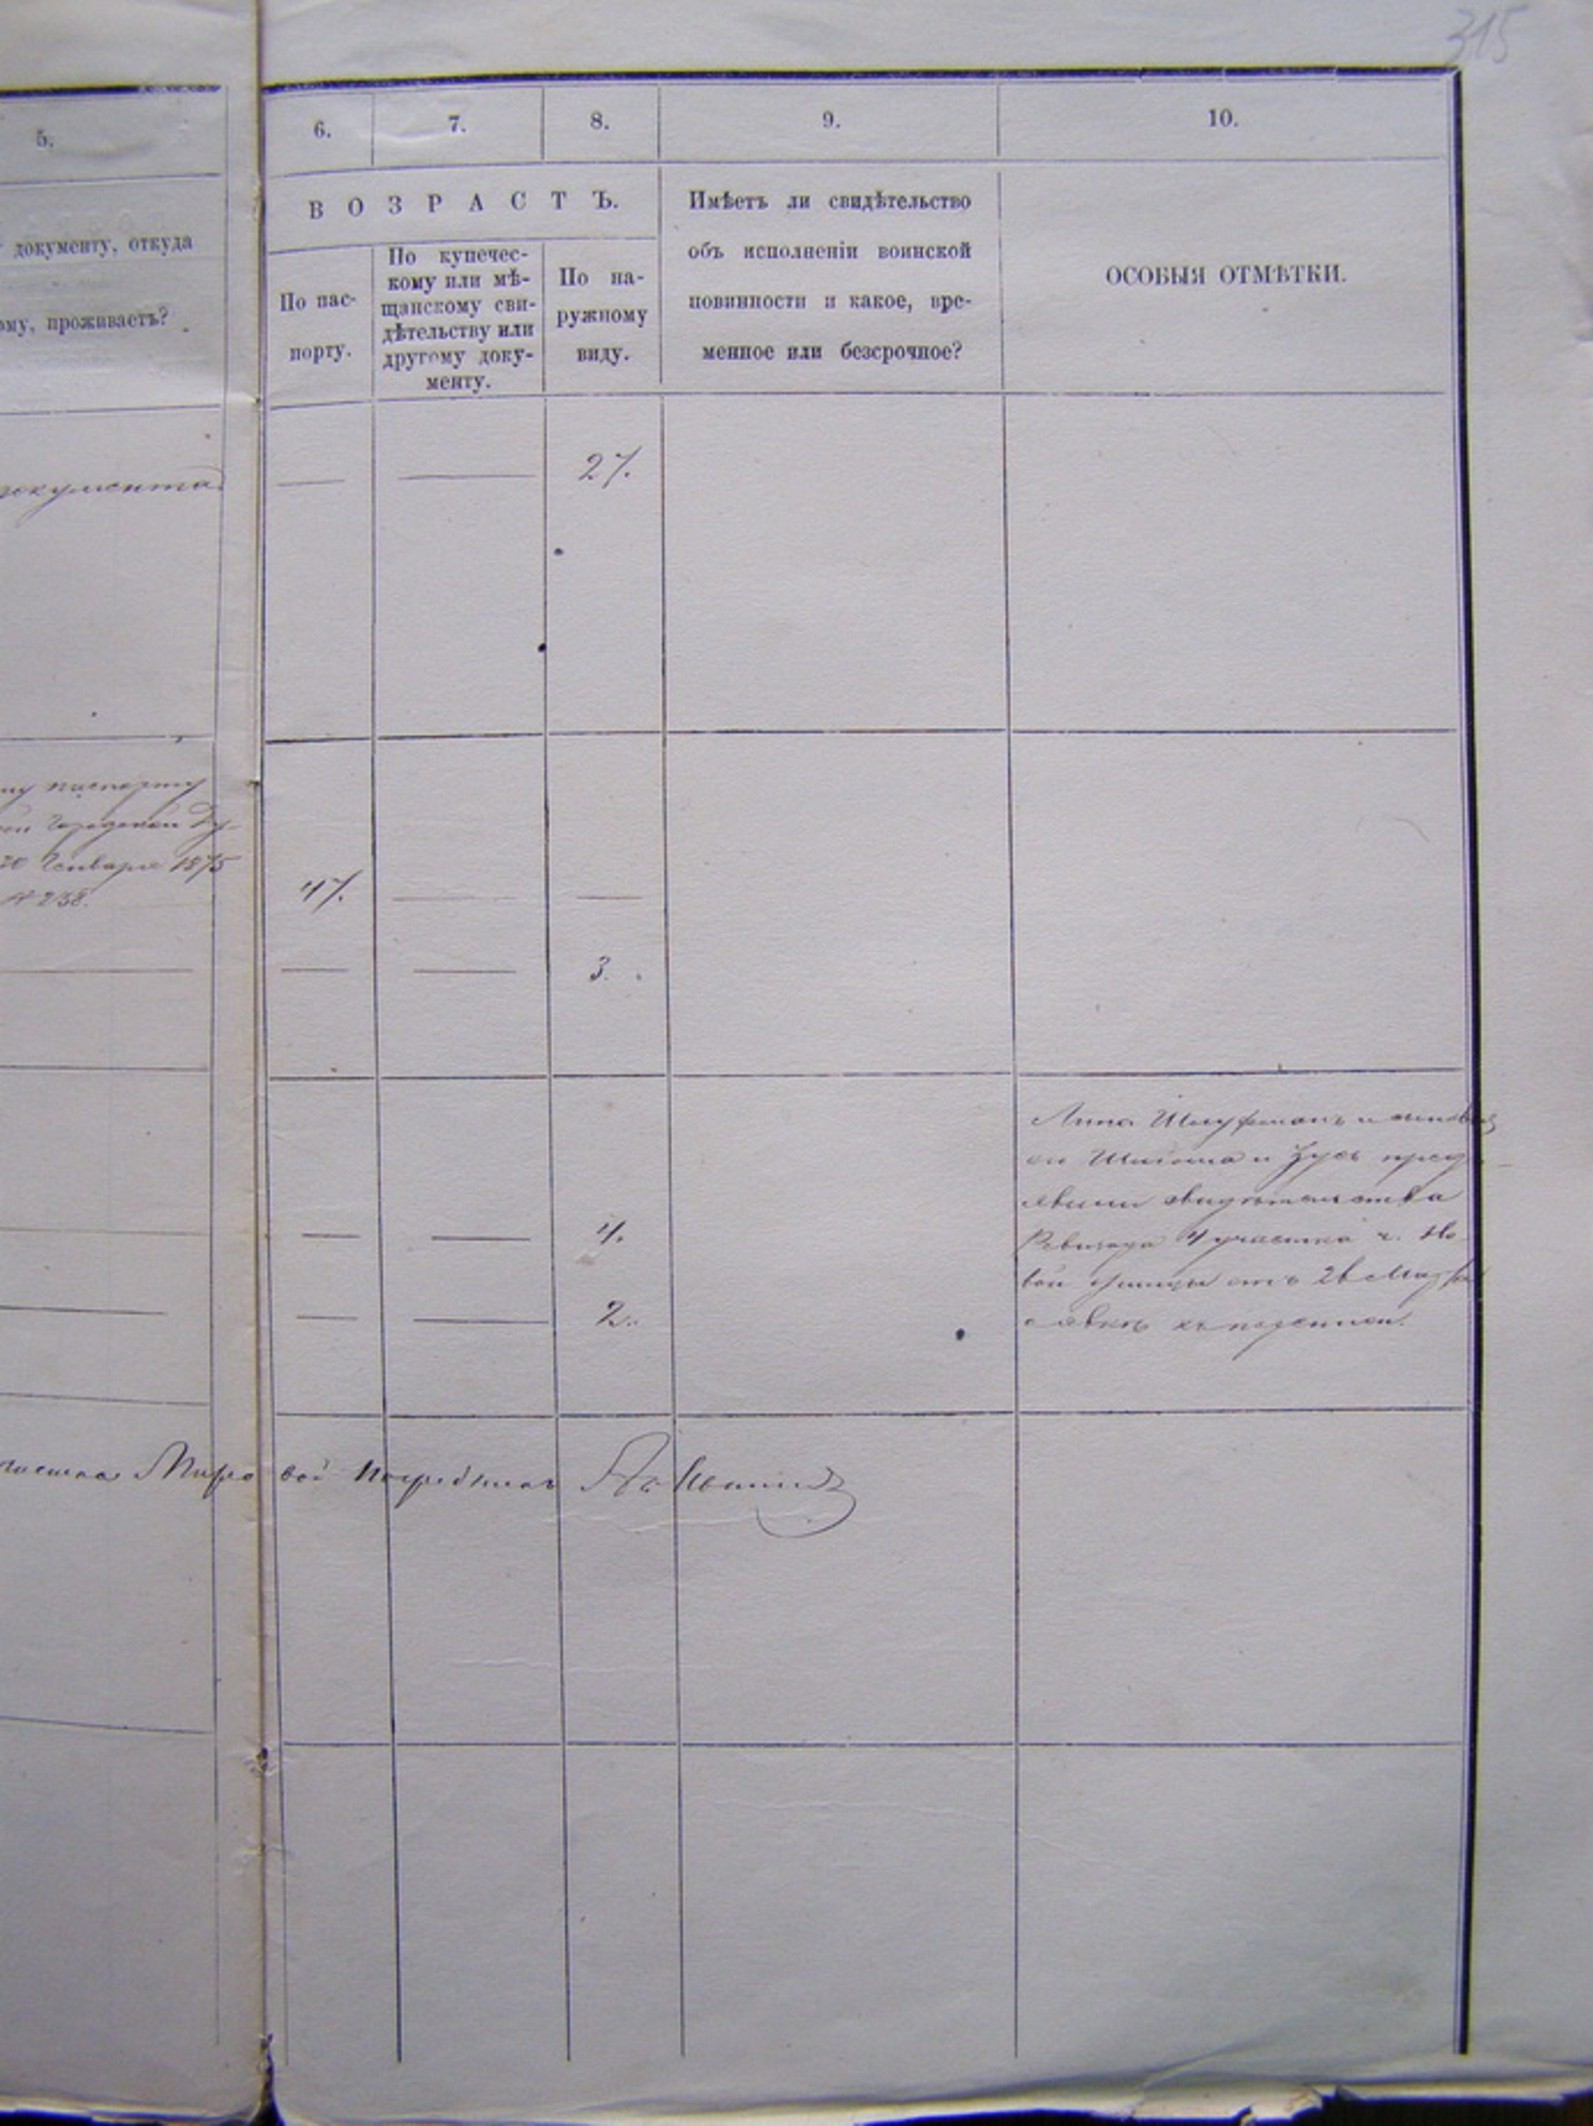 315
5.
6.
7.
8.
9.
10.
документу, откуда
ому, проживаетъ?
ВОЗРАСТЪ.
По пас-
порту.
По купечес-
кому или мѣ-
щанскому сви-
дѣтельству или
другому доку-
менту.
По на-
ружному
виду.
Имѣетъ ли свидѣтельство
объ исполненіи воинской
повинности и какое, вре-
менное или безсрочное?
ОСОБЫЯ ОТМѢТКИ.
документа
— — 27.
му паспорту
Городской Ду-
30 Генваря 1875
№ 238.
47. — —
— — — 3.
и сыновья
ея и Зусь пред
явили свидѣтельства
4 участка г. Но
вой отъ 26 Мар
о явкѣ
— — — 4.
— — — 2.
Мировой Посредникъ